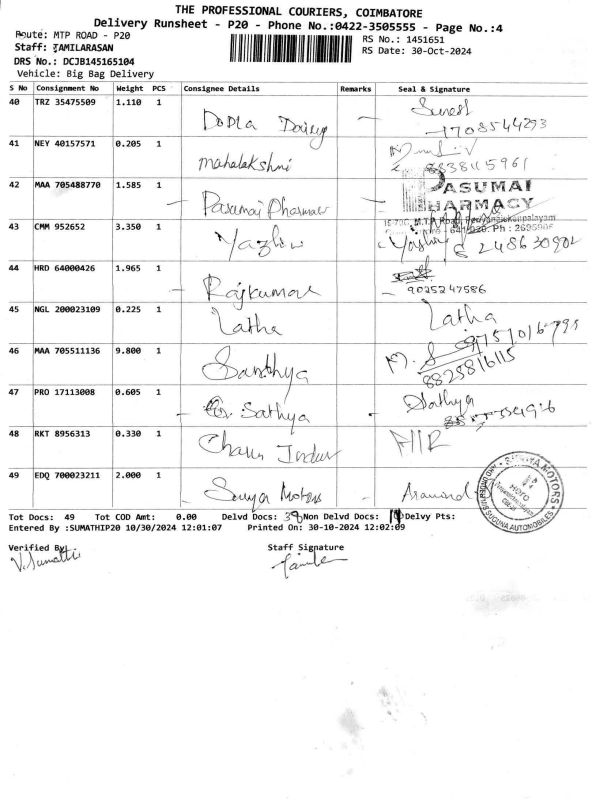 THE PROFESSIONAL COURIERS, COIMBATORE
Delivery Runsheet - P20 - Phone No.:0422-3505555 - Page No.:4
Route: MTP ROAD - P20
RS No.: 1451651
Staff: TAMILARASAN
RS Date: 30-Oct-2024
DRS No.: DCJB145165104
Vehicle: Big Bag Delivery
S No Consignment No Weight PCS Consignee Details Remarks Seal & Signature
40 TRZ 35475509 1.110 1 Suresh
41 NEY 40157571 0.205 1 Mahalakshmi
42 MAA 705488770 1.585 1 Pasumai Pharmacy PASUMAI PHARMACY
43 CMM 952652 3.350 1 Yazhini
44 HRD 64000426 1.965 1 Rajkumar 9025247586
45 NGL 200023109 0.225 1 Latha Latha
46 MAA 705511136 9.800 1 Sandhya
47 PRO 17113008 0.605 1 Sathya Sathya
48 RKT 8956313 0.330 1
49 EDQ 700023211 2.000 1 Surya Motors Aravind
SURYA MOTORS
SUGUNA AUTOMOBILES
Tot Docs: 49 Tot COD Amt: 0.00 Delvd Docs: 38 Non Delvd Docs: Delvy Pts:
Entered By :SUMATHIP20 10/30/2024 12:01:07 Printed On: 30-10-2024 12:02:09
Verified By
Staff Signature
V. Sumathi